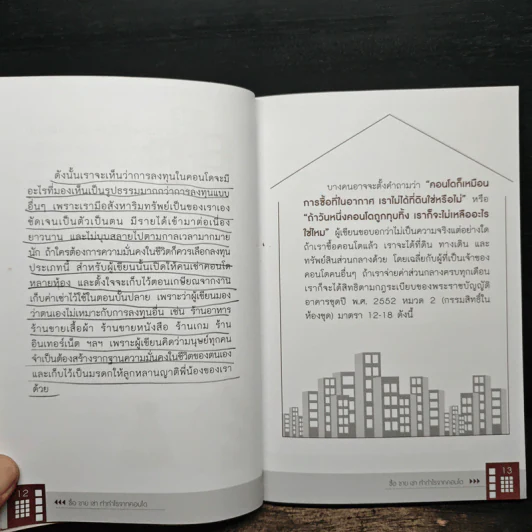 ดังนั้นเราจะเห็นว่าการลงทุนในคอนโดจะมี
อะไรที่มองเห็นเป็นรูปธรรมมากกว่าการลงทุนแบบ
อื่นๆ เพราะเรามีอสังหาริมทรัพย์เป็นของเราเอง
ชัดเจนเป็นตัวเป็นตน มีรายได้เข้ามาต่อเนื่อง
ยาวนาน และไม่บุบสลายไปตามกาลเวลามากมาย
นัก ถ้าใครต้องการความมั่นคงในชีวิตก็ควรเลือกลงทุน
ประเภทนี้ สำหรับผู้เขียนนั้นเปิดให้คนเช่าคอนโด
หลายห้อง และตั้งใจจะเก็บไว้ตอนเกษียณจากงาน
เก็บค่าเช่าไว้ใช้ในตอนบั้นปลาย เพราะว่าผู้เขียนมอง
ว่าตนเองไม่เหมาะกับการลงทุนอื่น เช่น ร้านอาหาร
ร้านขายเสื้อผ้า ร้านขายหนังสือ ร้านเกม ร้าน
อินเทอร์เน็ต ฯลฯ เพราะผู้เขียนคิดว่ามนุษย์ทุกคน
จำเป็นต้องสร้างรากฐานความมั่นคงในชีวิตของตนเอง
และเก็บไว้เป็นมรดกให้ลูกหลานญาติพี่น้องของเรา
ด้วย
12
ซื้อ ขาย เช่า ทำกำไรจากคอนโด
บางคนอาจจะตั้งคำถามว่า "คอนโดก็เหมือน
การซื้อที่ในอากาศ เราไม่ได้ที่ดินใช่หรือไม่" หรือ
"ถ้าวันหนึ่งคอนโดถูกทุบทิ้ง เราก็จะไม่เหลืออะไร
ใช่ไหม" ผู้เขียนขอบอกว่าไม่เป็นความจริงแต่อย่างใด
ถ้าเราซื้อคอนโดแล้ว เราจะได้ที่ดิน ทางเดิน และ
ทรัพย์สินส่วนกลางด้วย โดยเฉลี่ยกับผู้ที่เป็นเจ้าของ
คอนโดคนอื่นๆ ถ้าเราจ่ายค่าส่วนกลางครบทุกเดือน
เราก็จะได้สิทธิตามกฎระเบียบของพระราชบัญญัติ
อาคารชุดปี พ.ศ. 2552 หมวด 2 (กรรมสิทธิ์ใน
ห้องชุด) มาตรา 12-18 ดังนี้
ซื้อ ขาย เช่า ทำกำไรจากคอนโด
13